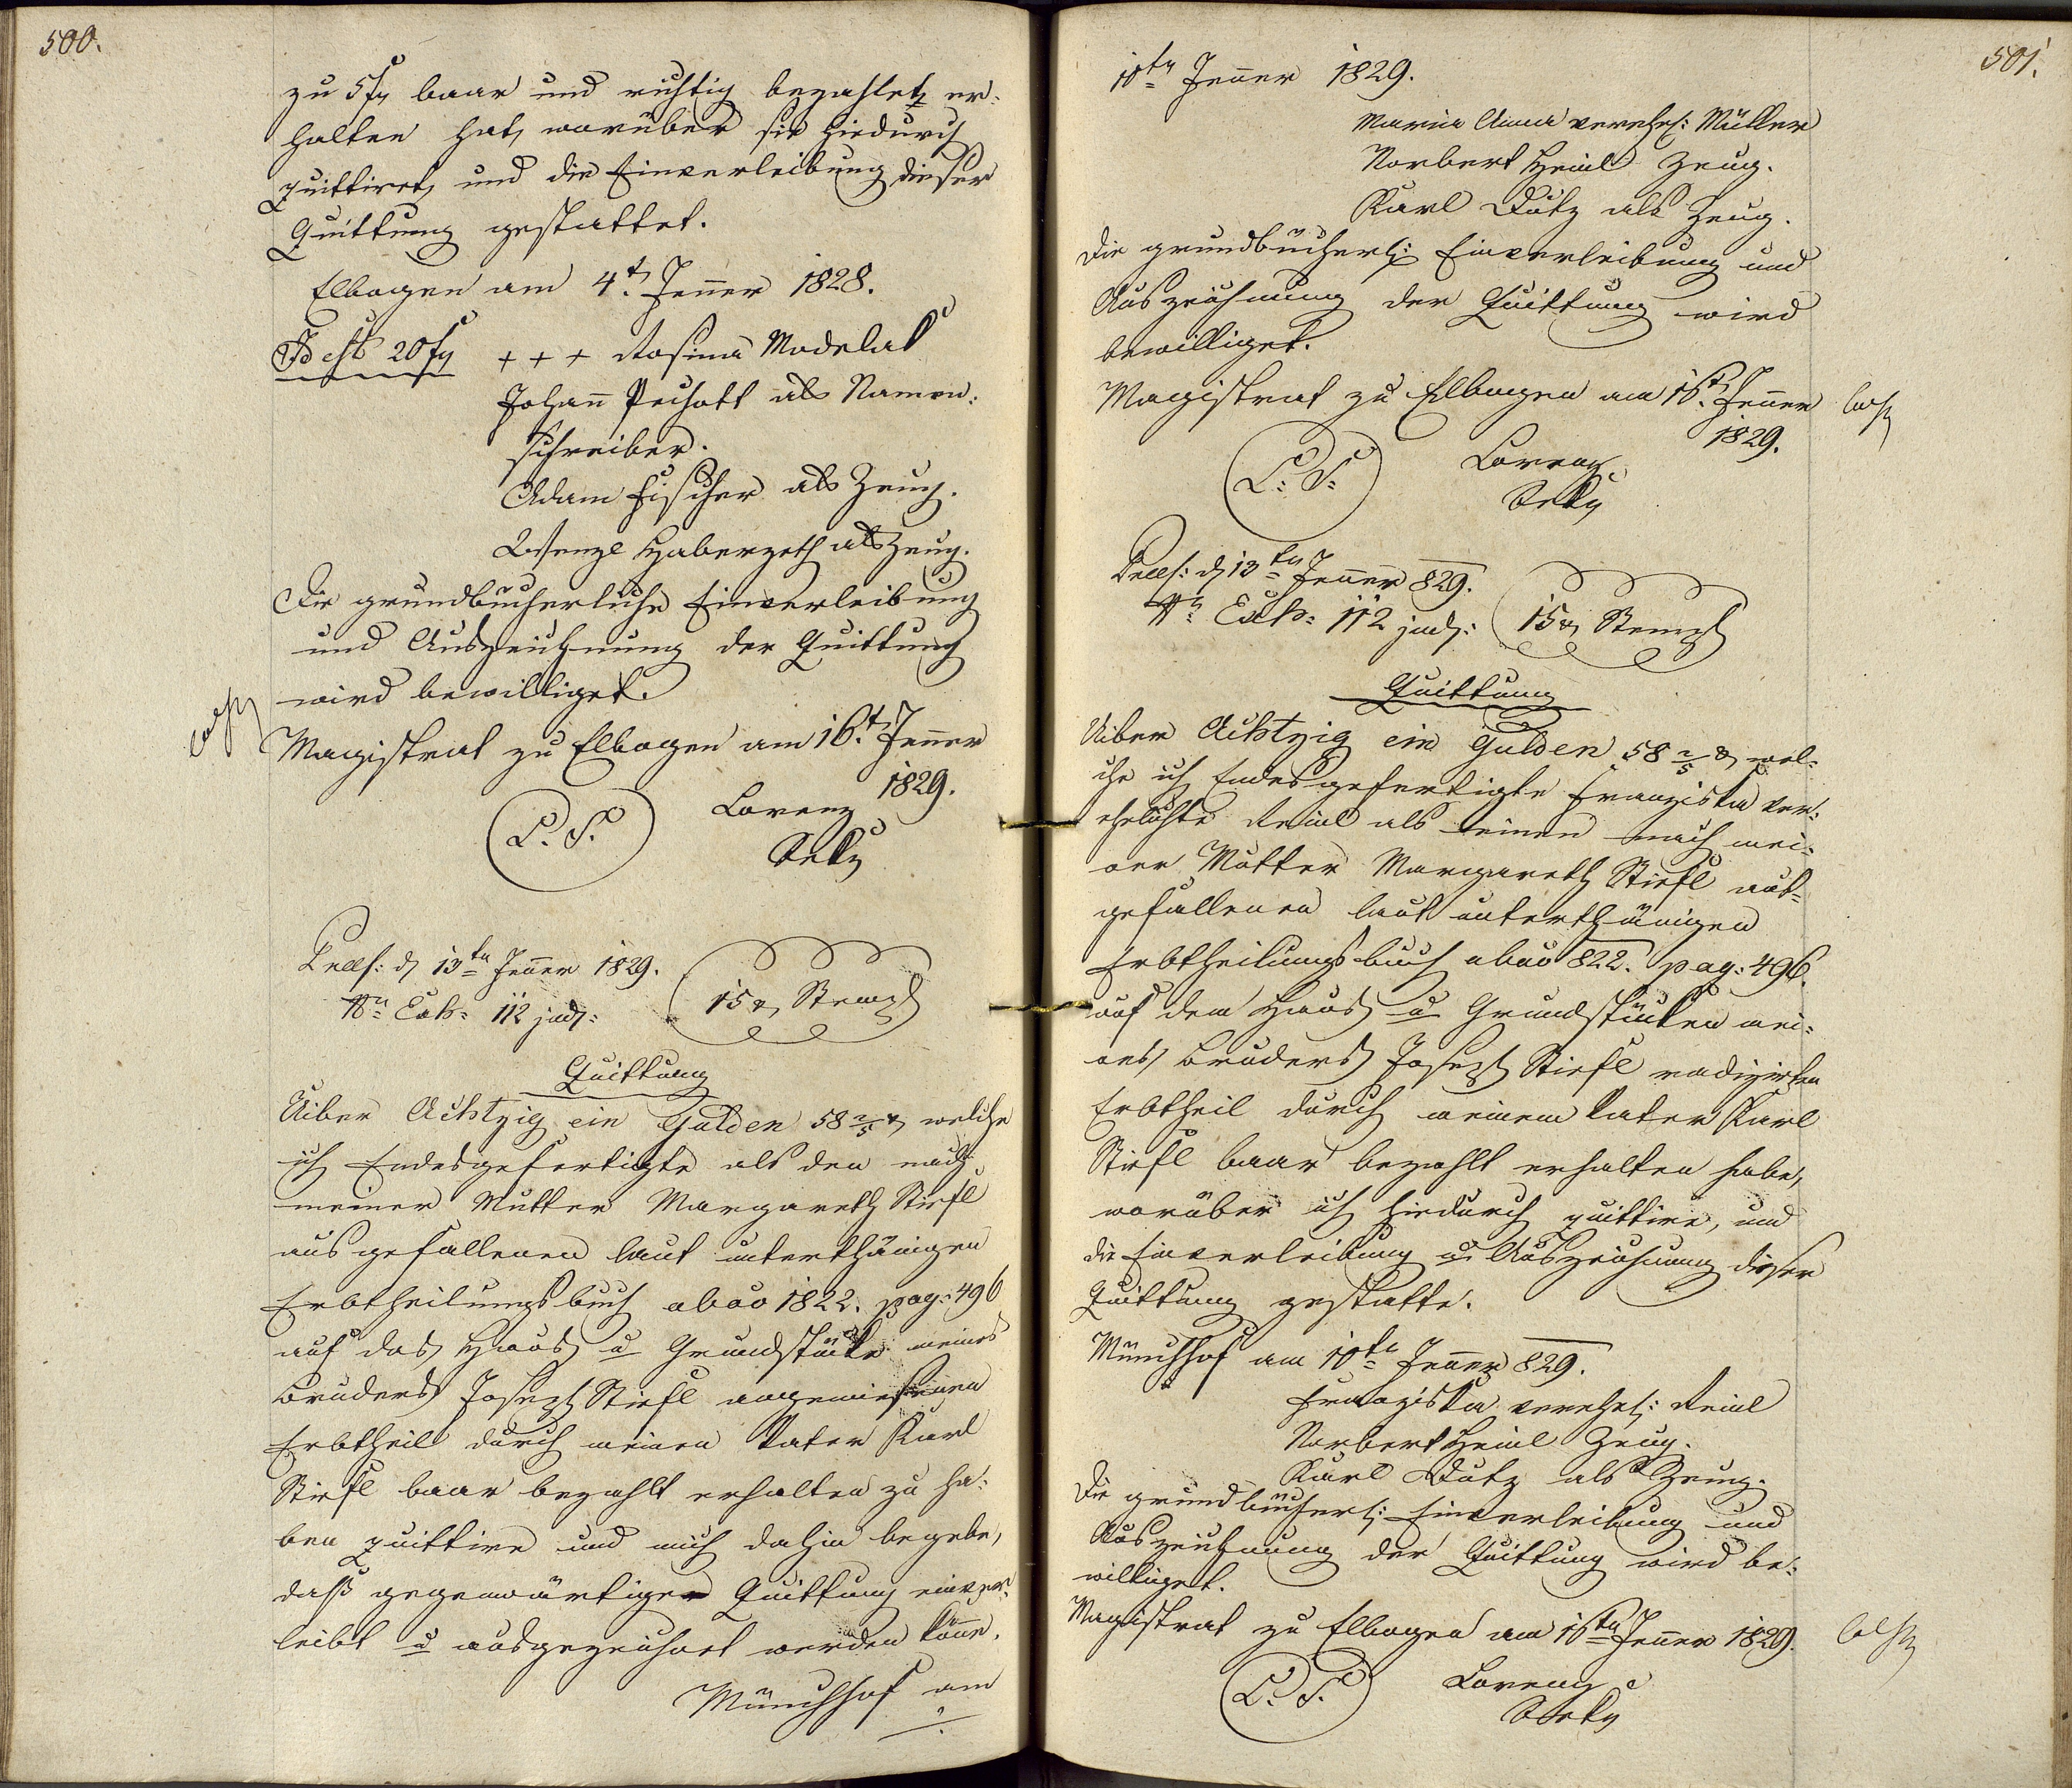 500.
zu 5 f baar und richtig bezahlet er-
halten hat, worüber sie hiedurch
quittiret, und die Einverleibung dieser
Quittung gestattet.
Elbogen am 4t. Jenner 1828.
Idest 20 f + + + Rosina Modelat
Johann Peschatt als Namen-
schreiber.
Adam Fischer als Zeug.
Wenzl Haberzeth als Zeug.
Die grundbücherliche Einverleibung
und Auszeichnung der Quittung
wird bewilliget.
Magistrat zu Elbogen am 16t. Jenner
1829.
L. S. Lorenz
Sekr
Praes: d 13ten Jenner 1829.
Nro Exh: 112 jud: 15 x Stempl
Quittung
Uiber Achtzig ein Gulden 58 2/5 x welche
ich Endesgefertigte als den nach
meiner Mutter Margareth Stiefl
ausgefallenen laut unterthänigen
Erbtheilungsbuch abao 1822. pag: 496
auf das Haus u Grundstücke meines
Bruders Joseph Stiefl angewiesenen
Erbtheil durch meinen Vater Karl
Stiefl baar bezahlt erhalten zu ha-
ben quittire und mich dahin begebe,
daß gegenwärtige Quittung einver-
leibt u ausgezeichnet werden könne.
Münchhof am
501.
10ten Jenner 1829.
Maria Anna verehel: Müller
Norbert Heinl Zeug.
Karl Dutz als Zeug.
Die grundbücherl: Einverleibung und
Auszeichnung der Quittung wird
bewilliget.
Magistrat zu Elbogen am 16t. Jenner
1829.
L: S: Lorenz
Sekr
Praes: d 13ten Jenner 829.
Nro Exh: 112 jud: 15 x Stempl
Quittung
Uiber Achtzig ein Gulden 58 2/5 x wel-
che ich Endesgefertigte Franziska ver-
ehelichte Reinl als einen nach mei-
ner Mutter Margareth Stiefl aus-
gefallenen laut unterthänigen
Erbtheilungsbuch abao 822. pag: 496.
auf dem Haus u Grundstücken mei-
nes Bruders Joseph Stiefl radizirten
Erbtheil durch meinem Vater Karl
Stiefl baar bezahlt erhalten habe,
worüber ich hiedurch quittire, und
die Einverleibung u Auszeichnung dieser
Quittung gestatte.
Münchhof am 10ten Jenner 829.
Franziska verehel: Reinl
Norbert Heinl Zeug.
Karl Dutz als Zeug.
Die grundbücherl: Einverleibung und
Auszeichnung der Quittung wird be-
williget.
Magistrat zu Elbogen am 16ten Jenner 1829.
L. S. Lorenz
Sekr